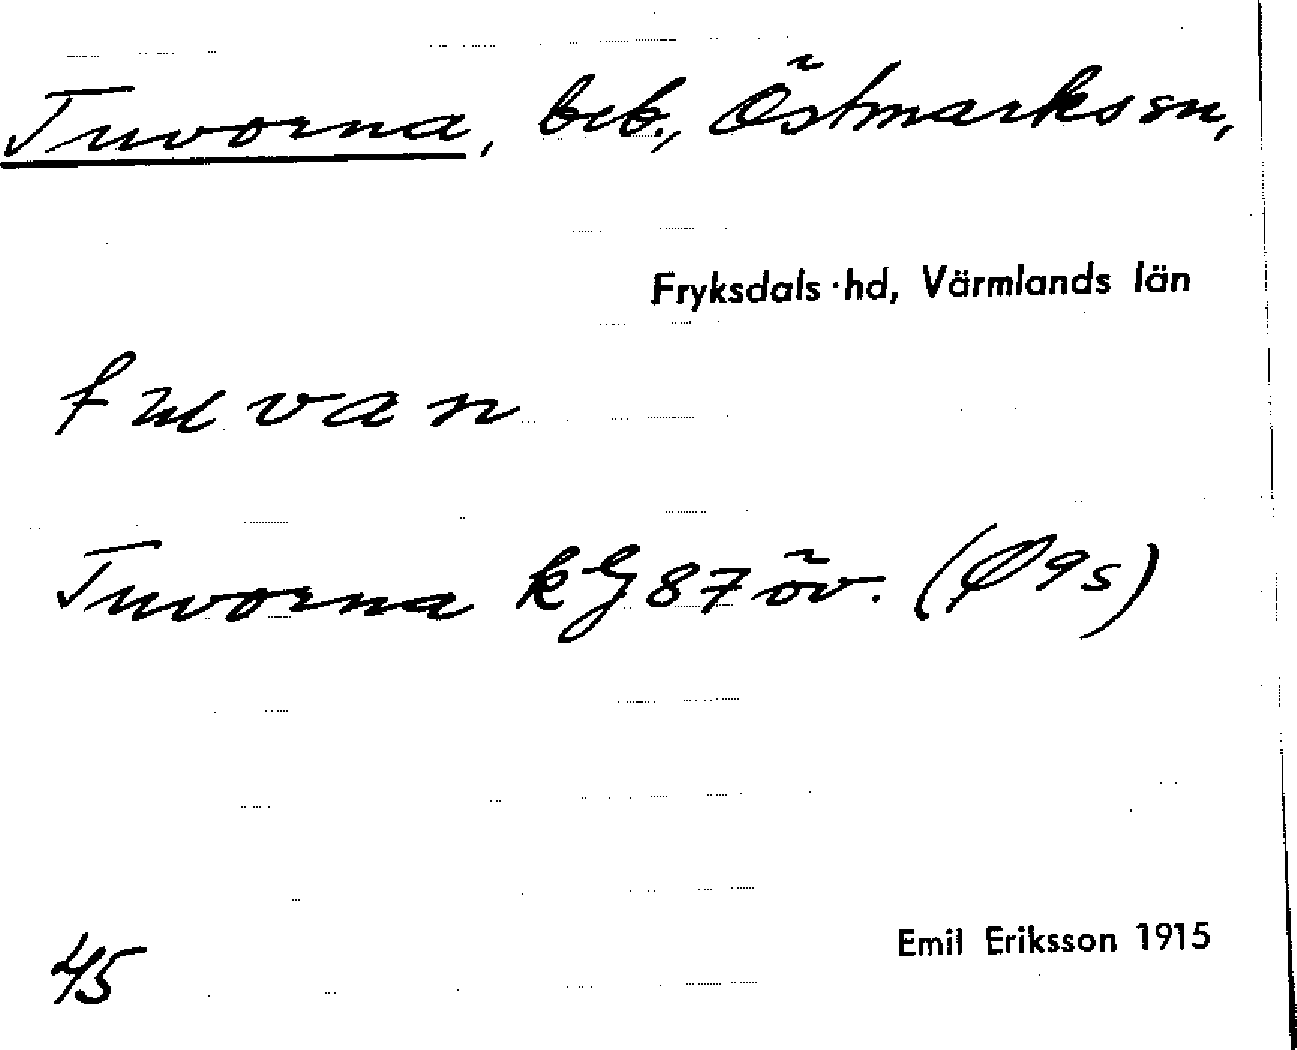 Tuvorna, beb., Östmarks sn,
Fryksdals hd, Värmlands län
tuvan
Tuvorna kG 87 öv.
45
Emil Eriksson 1915